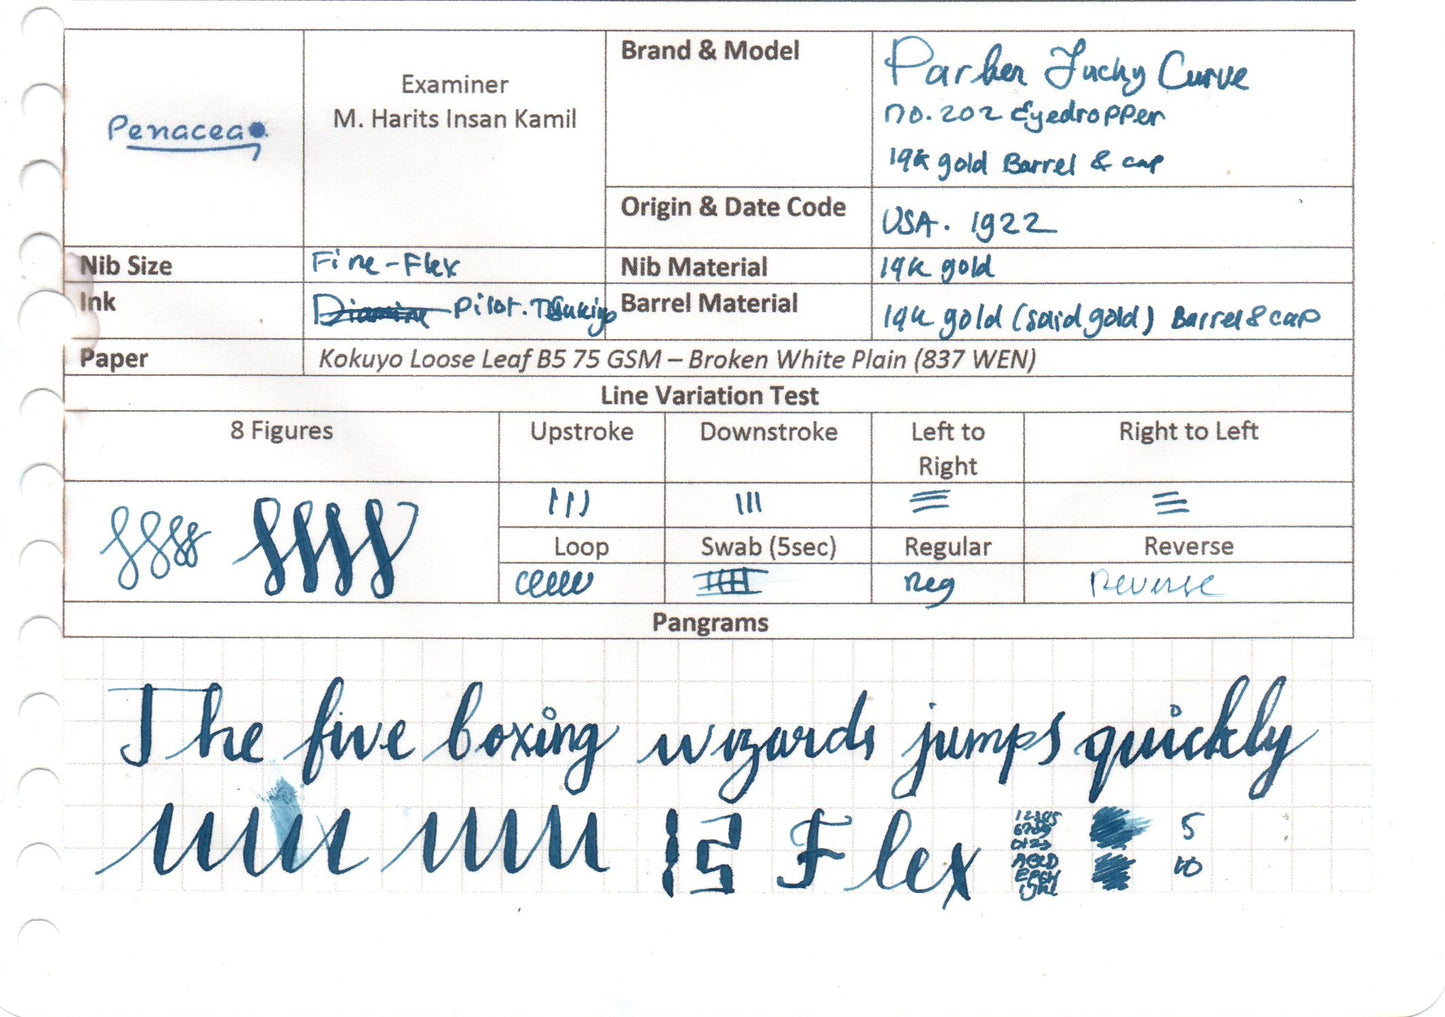 Penacea
Examiner
M. Harits Insan Kamil
Brand & Model
Parker Lucky Curve
no. 202 Eyedropper
14k gold Barrel & cap
Origin & Date Code
USA. 1922
Nib Size
Fine-Flex
Nib Material
14k gold
Ink
Diamine Pilot. Tsukiyo
Barrel Material
14k gold (solid gold) Barrel & cap
Paper
Kokuyo Loose Leaf B5 75 GSM – Broken White Plain (837 WEN)
Line Variation Test
8 Figures
Upstroke
Downstroke
Left to
Right
Right to Left
Loop
Swab (5sec)
Regular
Reverse
Reg
Reverse
Pangrams
The five boxing wizards jumps quickly
Flex
12345
6789
ABCD
EFGH
IJKL
5
10